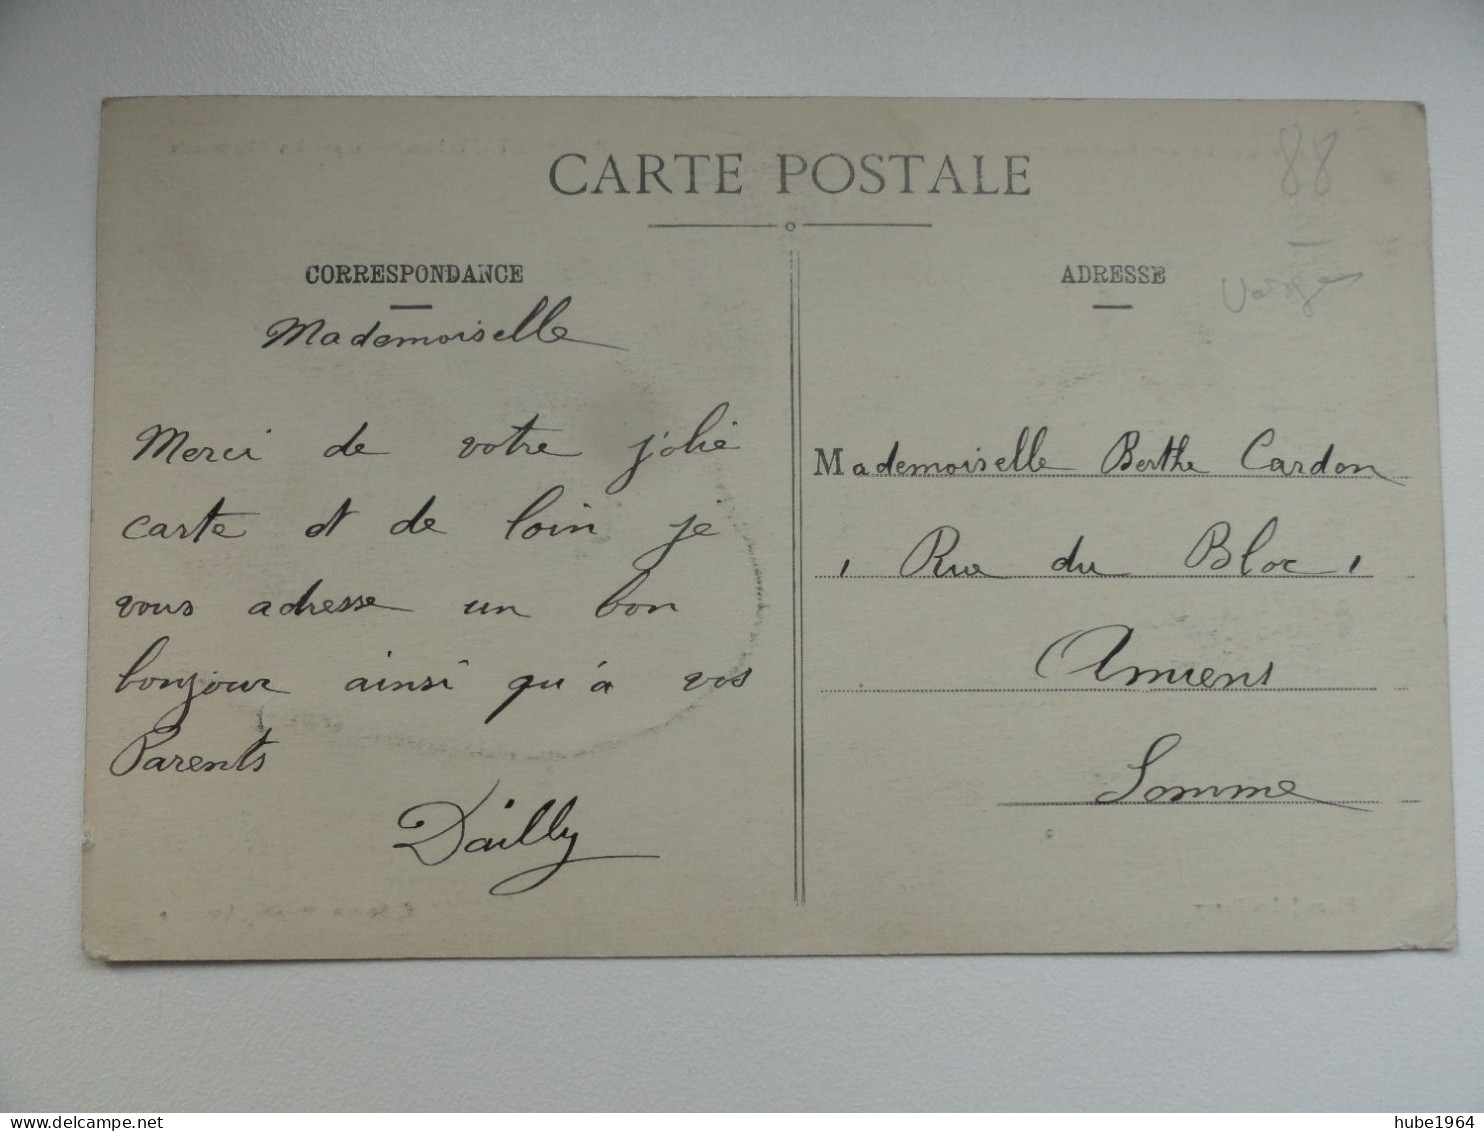 CARTE POSTALE
88
CORRESPONDANCE
ADRESSE
Mademoiselle
Merci de votre jolie
carte et de loin je
vous adresse un bon
bonjour ainsi qu'à vos
Parents
Dailly
Mademoiselle Berthe Cardon
, Rue du Bloc ,
Amiens
Somme
©delcampe.net
hube1964